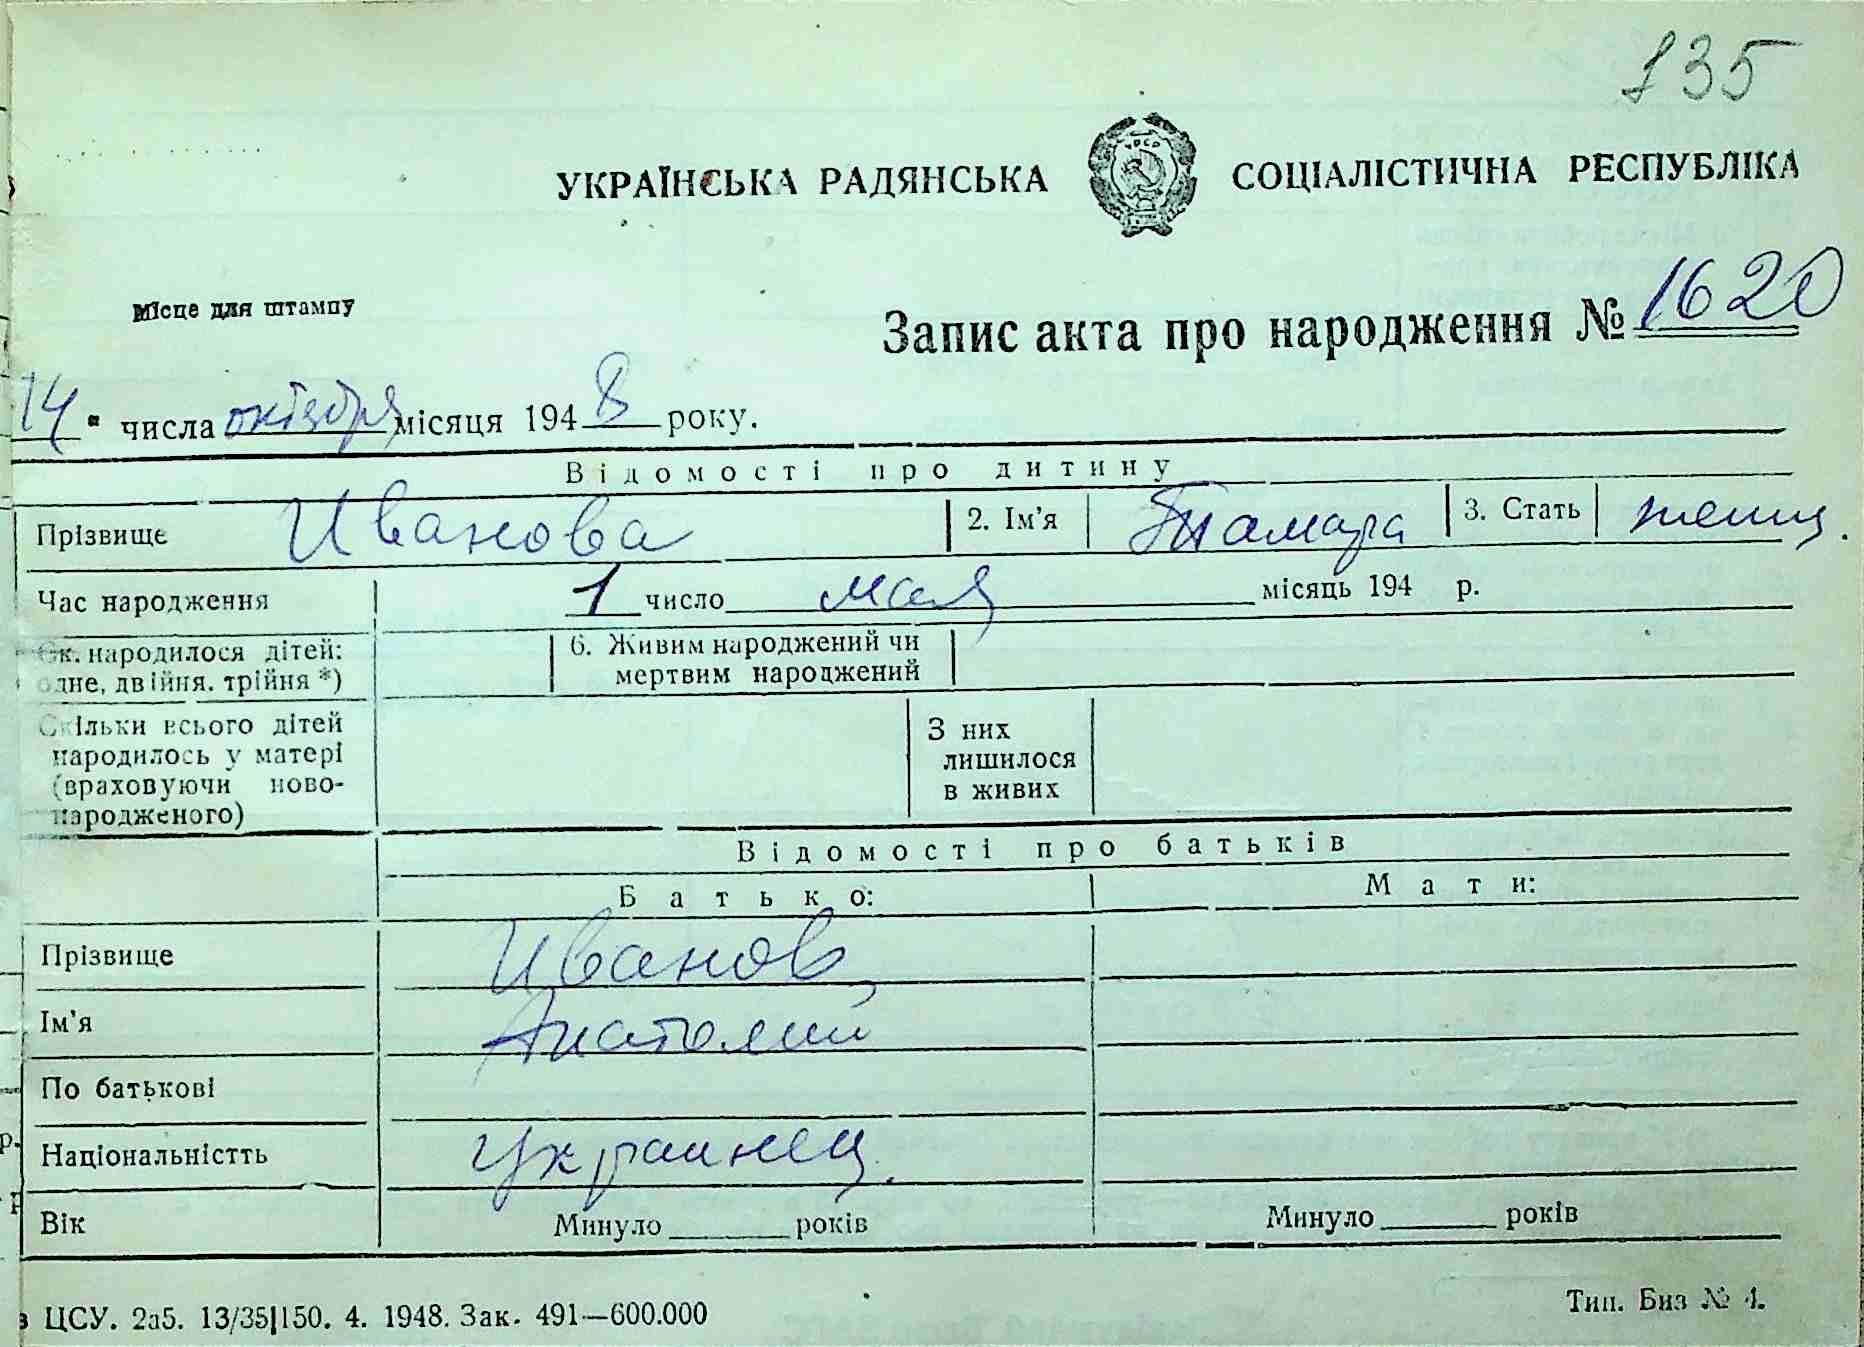 135
УКРАЇНСЬКА РАДЯНСЬКА СОЦІАЛІСТИЧНА РЕСПУБЛІКА
УРСР
Місце для штампу
Запис акта про народження № 1620
14 " числа октября місяця 1948 року.
Відомості про дитину
Прізвище Иванова 2. Ім'я Тамара 3. Стать женщ.
Час народження 1 число мая місяць 194 р.
Ск. народилося дітей: 6. Живим народжений чи
одне, двійня. трійня *) мертвим народжений
Скільки всього дітей З них
народилось у матері лишилося
(враховуючи ново- в живих
народженого)
Відомості про батьків
Батько: Мати:
Прізвище Иванов
Ім'я Анатолий
По батькові
Національністть Украинец.
Вік Минуло років Минуло років
ЦСУ. 2а5. 13/35|150. 4. 1948. Зак. 491—600.000
Тип. Биз № 4.